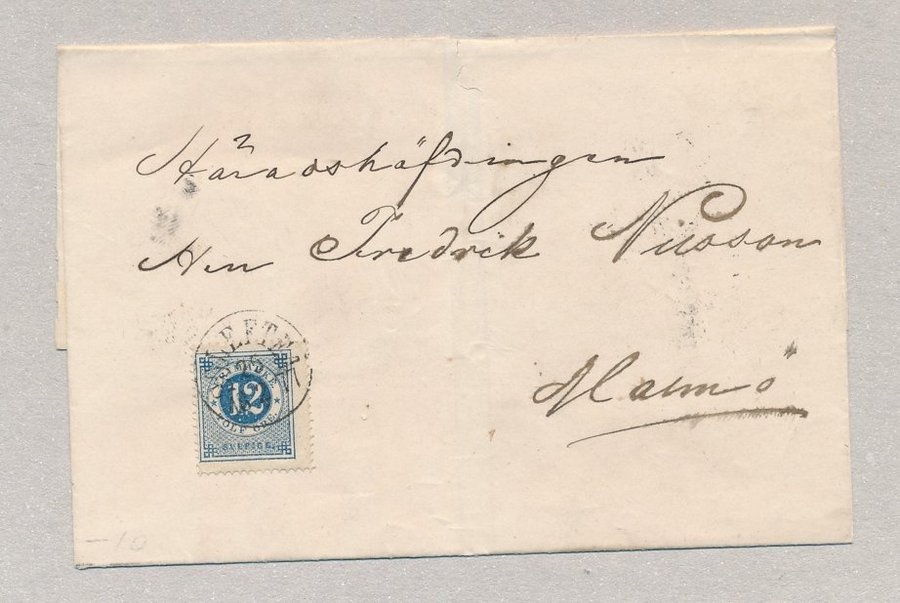 Häradshöfdingen
Herr Fredrik Nilsson
Malmö
FRIMÄRKE
12
TOLF ÖRE
SVERIGE
-10